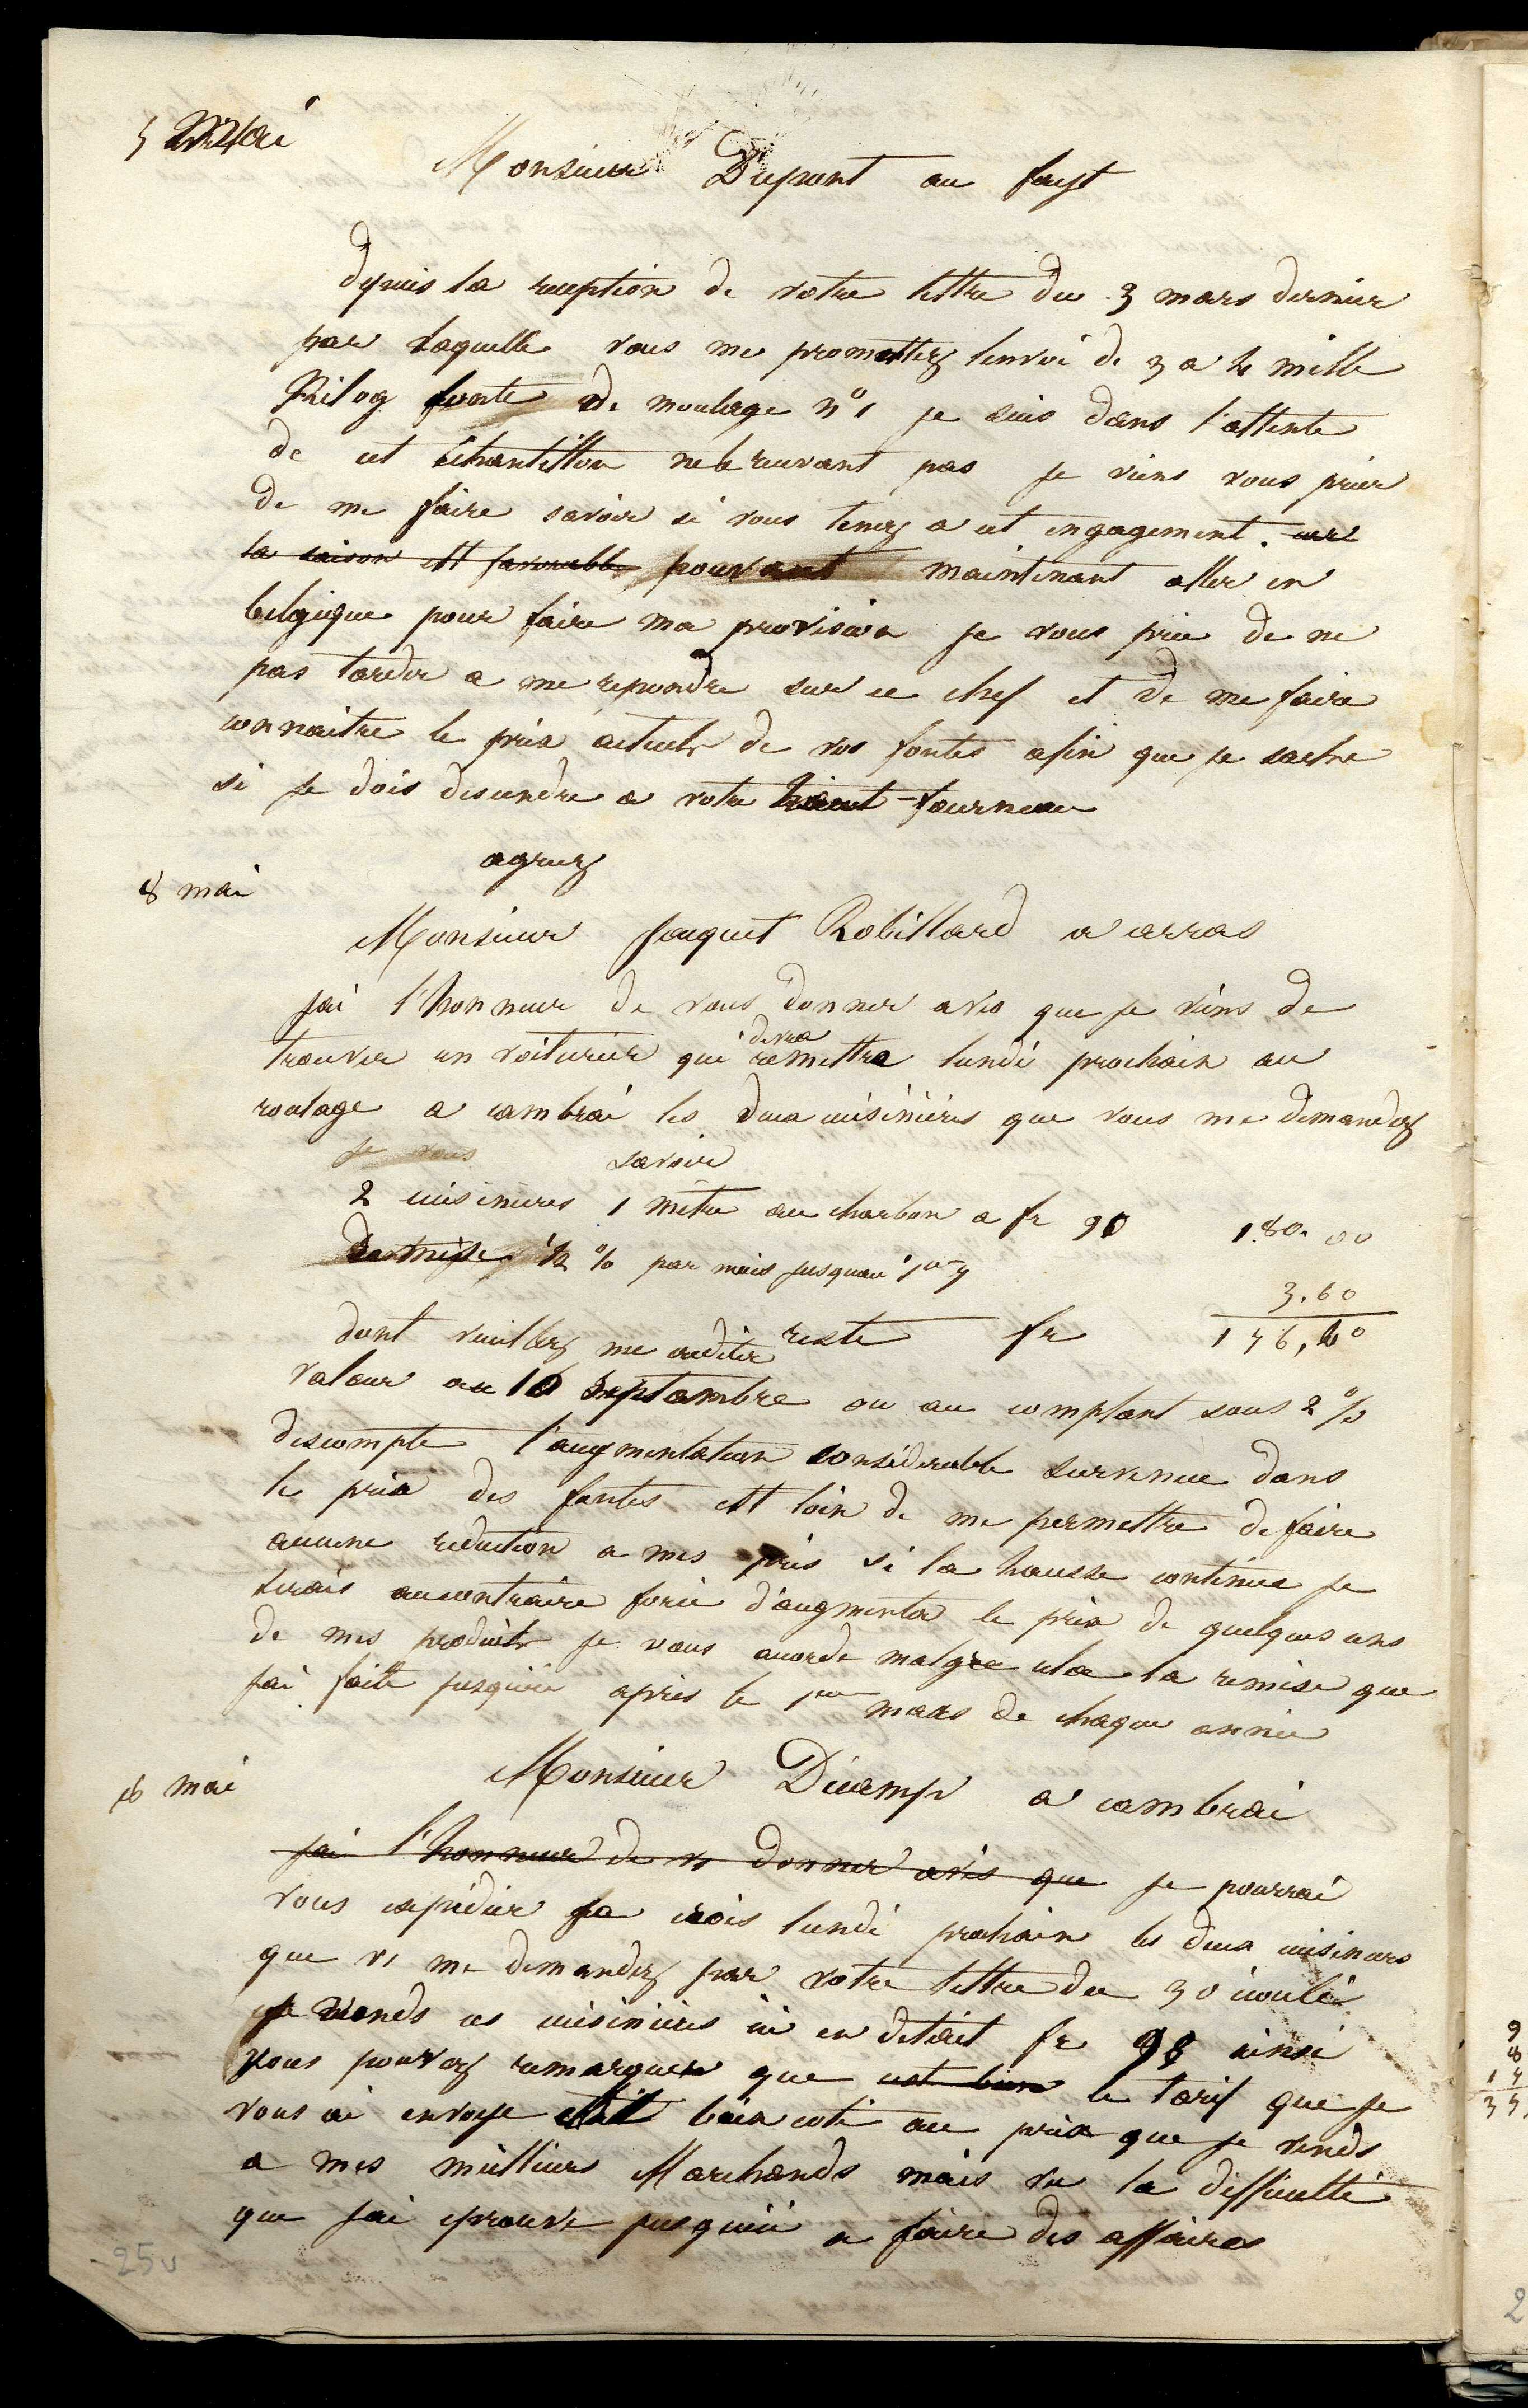 5 mai
Monsieur Dupont au fayt
depuis la reception de votre lettre du 3 mars dernier
par laquelle vous me promettez lenvoi de 3 a 4 mille
Kilog fonte de moulage n° 1 je suis dans l'attente
de cet échantillon ne le recevant pas je viens vous prier
de me faire savoir si vous tenez a cet engagement. car
la saison est favorable pouvant maintenant aller en
belgique pour faire ma provision je vous prie de ne
pas tarder a me repondre sur ce chef et de me faire
connaitre le prix actuels de vos fontes afin que je sache
si je dois descendre a votre haut-fourneau
agreez
8 mai
Monsieur Jacquet Robillard a arras
jai l'honneur de vous donner avis que je viens de
devra
trouver un voiturier qui remettra lundi prochain au
roulage a cambrai les deux cuisinières que vous me demandez
je vous savoir
2 cuisinieres 1 mètre au charbon a fr 90 180.00
1/2 % par mois jusquau 1er 7
3.60
reste fr 176,40
dont veuillez me créditer
valeur au 10 Septembre ou au comptant sous 2 %
descompte l'augmentation considerable survenue dans
le prix des fontes est loin de me permettre de faire
aucune reduction a mes prix si la hausse continue je
serais aucontraire forcé d'augmenter le prix de quelques uns
de mes produits je vous accorde malgré cela la remise que
jai faite jusquici apres le 1er mars de chaque année
8 mai
Monsieur Ducamp a cambrai
jai l'honneur de vs donner avis que je pourrai
vous expédier je crois lundi prochain les deux cuisineres
que vs me demandez par votre lettre du 30 écoulé
je vends ces cuisinières ici en detail fr 98 ainsi
vous pouvez remarquer que cest bien le tarif que je
vous ai envoye était bien coté au prix que je vends
a mes meilleurs Marchands mais vu la difficulté
que jai eprouvé jusquici a faire des affaires
25v
9
8
17